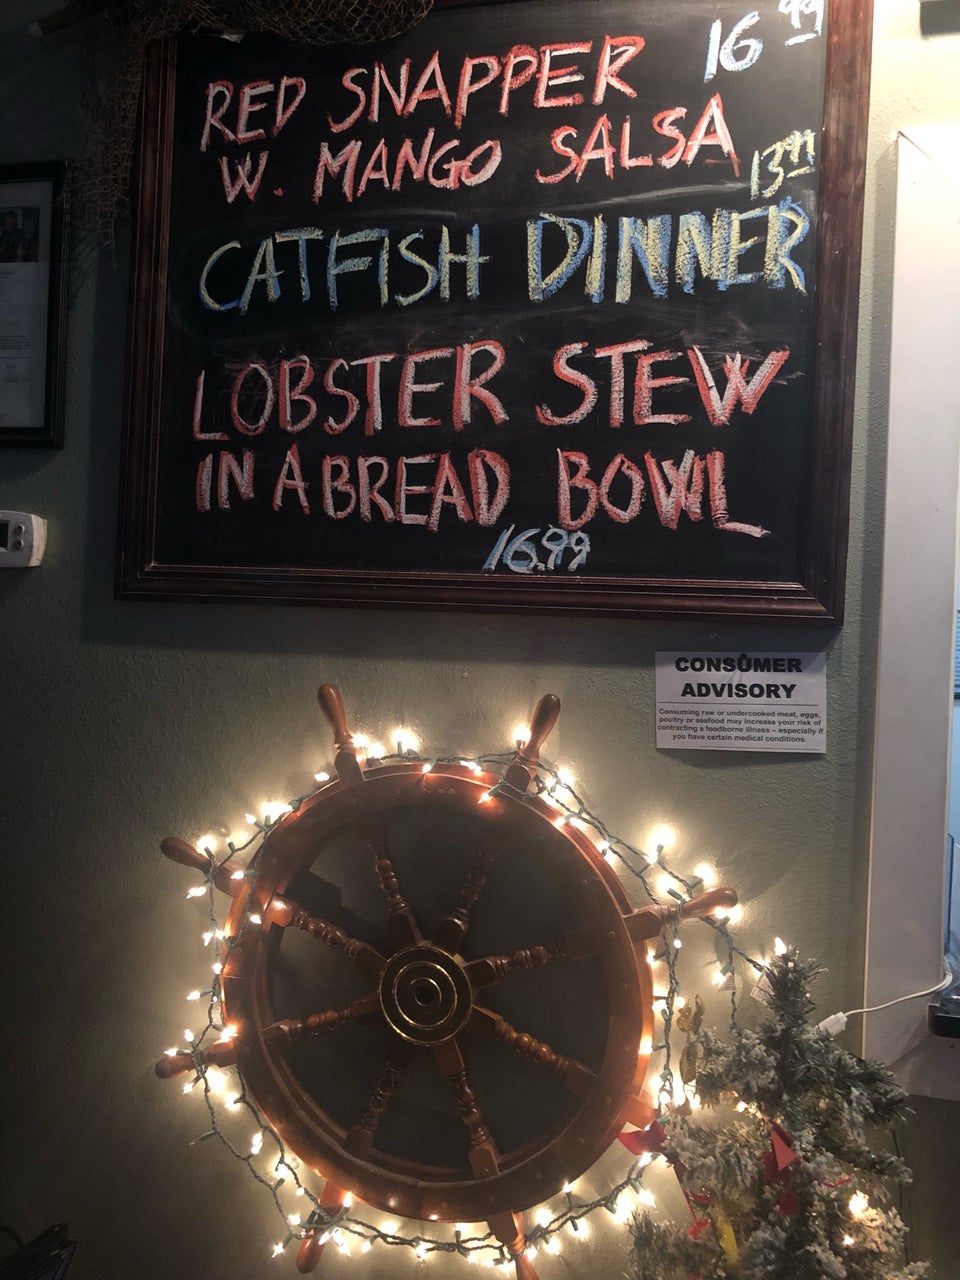 RED SNAPPER 16 99
W. MANGO SALSA
CATFISH DINNER 13
LOBSTER STEW
IN A BREAD BOWL
16.99
CONSUMER
ADVISORY
Consuming raw or undercooked meat, eggs,
poultry or seafood may increase your risk of
contracting a foodborne illness – especially if
you have certain medical conditions.